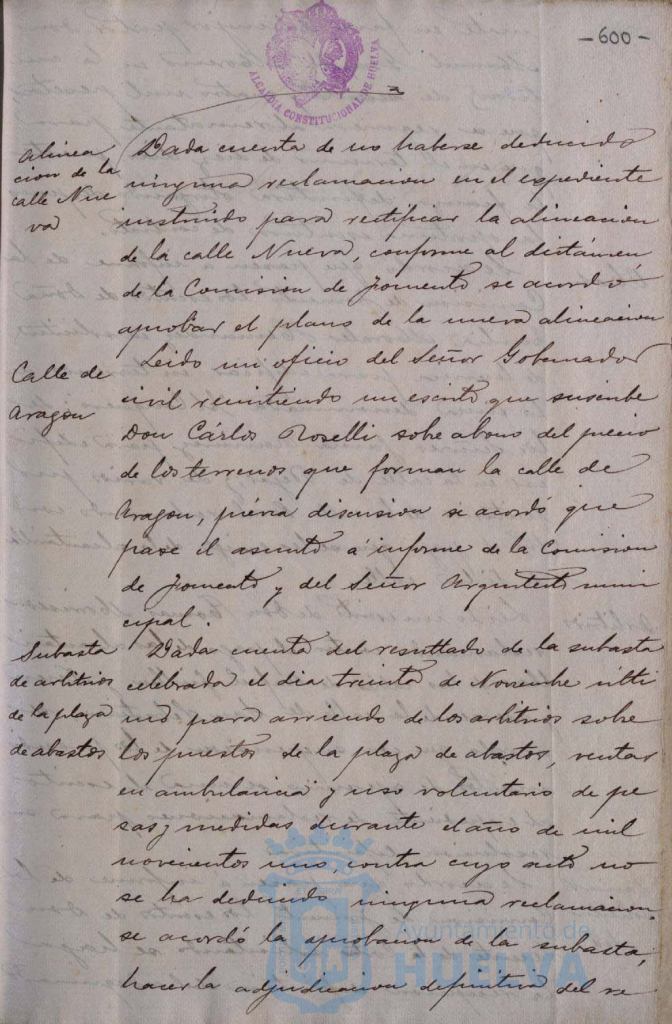 -600-
ALCALDIA CONSTITUCIONAL DE HUELVA
Alinea
cion de la
calle Nue
va
Dada cuenta de no haberse deducido
ninguna reclamacion en el expediente
instruido para rectificar la alineacion
de la calle Nueva, conforme al dictámen
de la Comision de Fomento se acordó
aprobar el plano de la nueva alineacion
Calle de
Aragon
Leido un oficio del Señor Gobernador
civil remitiendo un escrito que suscribe
Don Cárlos Roselli sobre abono del precio
de los terrenos que forman la calle de
Aragon, prévia discusion se acordó que
pase el asunto á informe de la Comision
de Fomento y del Señor Arquitecto muni
cipal.
Subasta
de arbitrios
de la plaza
de abastos
Dada cuenta del resultado de la subasta
celebrada el dia treinta de Noviembre ulti
mo para arriendo de los arbitrios sobre
los puestos de la plaza de abastos, ventas
en ambulancia y uso voluntario de pe
sas y medidas durante el año de mil
novecientos uno, contra cuyo acto no
se ha deducido ninguna reclamacion
se acordó la aprobacion de la subasta,
hacer la adjudicacion definitiva del re
Ayuntamiento de
HUELVA